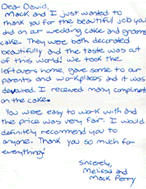 Dear David,
Mack and I just wanted to
thank you for the beautiful job you
did on our wedding cake and grooms
cake. They were both decorated
beautifully and the taste was out
of this world! We took the
leftovers home, gave some to our
parents and workplaces and it was
devoured. I received many compliments
on the cakes.
You were easy to work with and
the price was very fair. I would
definitely recommend you to
anyone. Thank you so much for
everything!
Sincerely,
Melissa and
Mack Perry